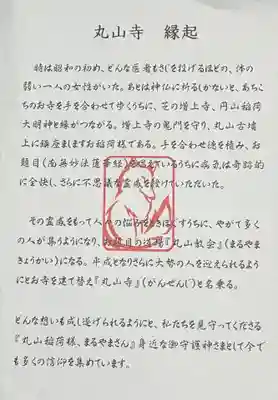 丸山寺 縁起
時は昭和の初め、どんな医者もさじを投げるほどの、体の
弱い一人の女性がいた。あとは神仏に祈るしかないと、あち
こちのお寺を手を合わせて歩くうちに、芝の増上寺、円山稲荷
大明神と縁がつながる。増上寺の鬼門を守り、丸山古墳
上に鎮座まします お稲荷様である。手を合わせ徳を積み、お
題目(南無妙法蓮華経)を唱えているうちに病気は奇跡的
に全快し、さらに不思議な霊感を授けていただいた。
その霊感をもって人々の悩みをときほぐすうちに、やがて多く
の人が集うようになり、お題目の道場『丸山教会』(まるやま
きょうかい)になる。平成となりさらに大勢の人を迎えられるよう
にとお寺を建て替え『丸山寺』(がんせんじ)と名乗る。
どんな想いも成し遂げられるようにと、私たちを見守ってくださる
『丸山稲荷様、まるやまさん』身近な御守護神さまとして今で
も多くの信仰を集めています。